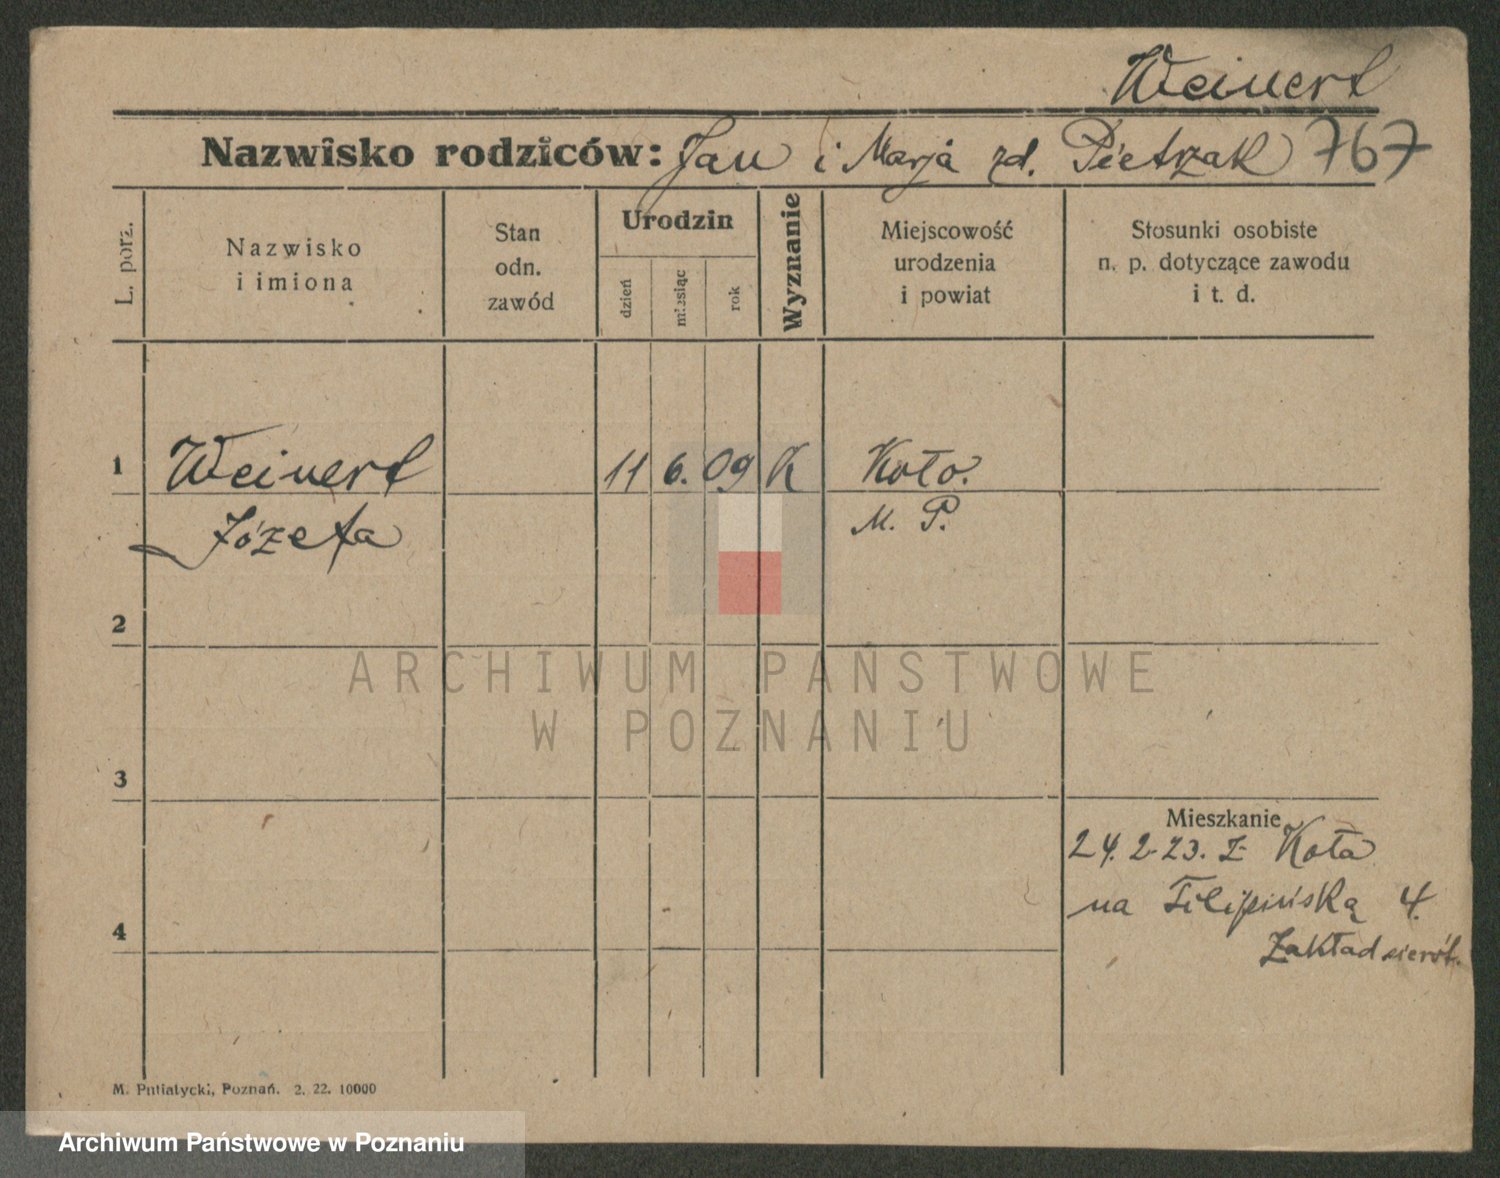 Weinert
Nazwisko rodziców: Jan i Marja zd. Pietrzak 767
L. porz.
Nazwisko
i imiona
Stan
odn.
zawód
Urodzin
dzień
miesiąc
rok
Wyznanie
Miejscowość
urodzenia
i powiat
Stosunki osobiste
n. p. dotyczące zawodu
i t. d.
1 Weinert 11 6. 09 K Koło.
Józefa M. P.
2
3
Mieszkanie
24. 2. 23. z Koła
na Filipińską 4.
4
Zakład sierót.
M. Putiatycki, Poznań. 2. 22. 10000
ARCHIWUM PAŃSTWOWE
W POZNANIU
Archiwum Państwowe w Poznaniu